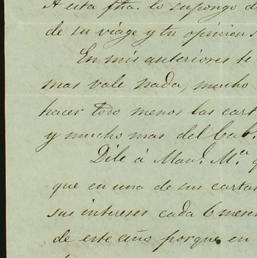 A esta fha. lo supongo d
de su viage y tu opinion s
En mis anteriores te
mas vale nada, mucho
hacer todo menos las cart
y mucho mas del Cab.
Dile á Man.l M.a q
que en una de sus cartas
sus intereses cada 6 mese
de este año porque en